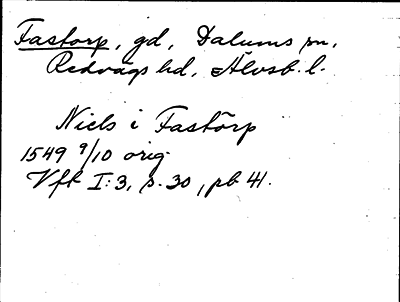 Fastorp, gd, Dalums sn,
Redvägs hd, Älvsb. l.
Niels i Fastörp
1549 9/10 orig.
Vfk I:3, s. 30, pb 41.